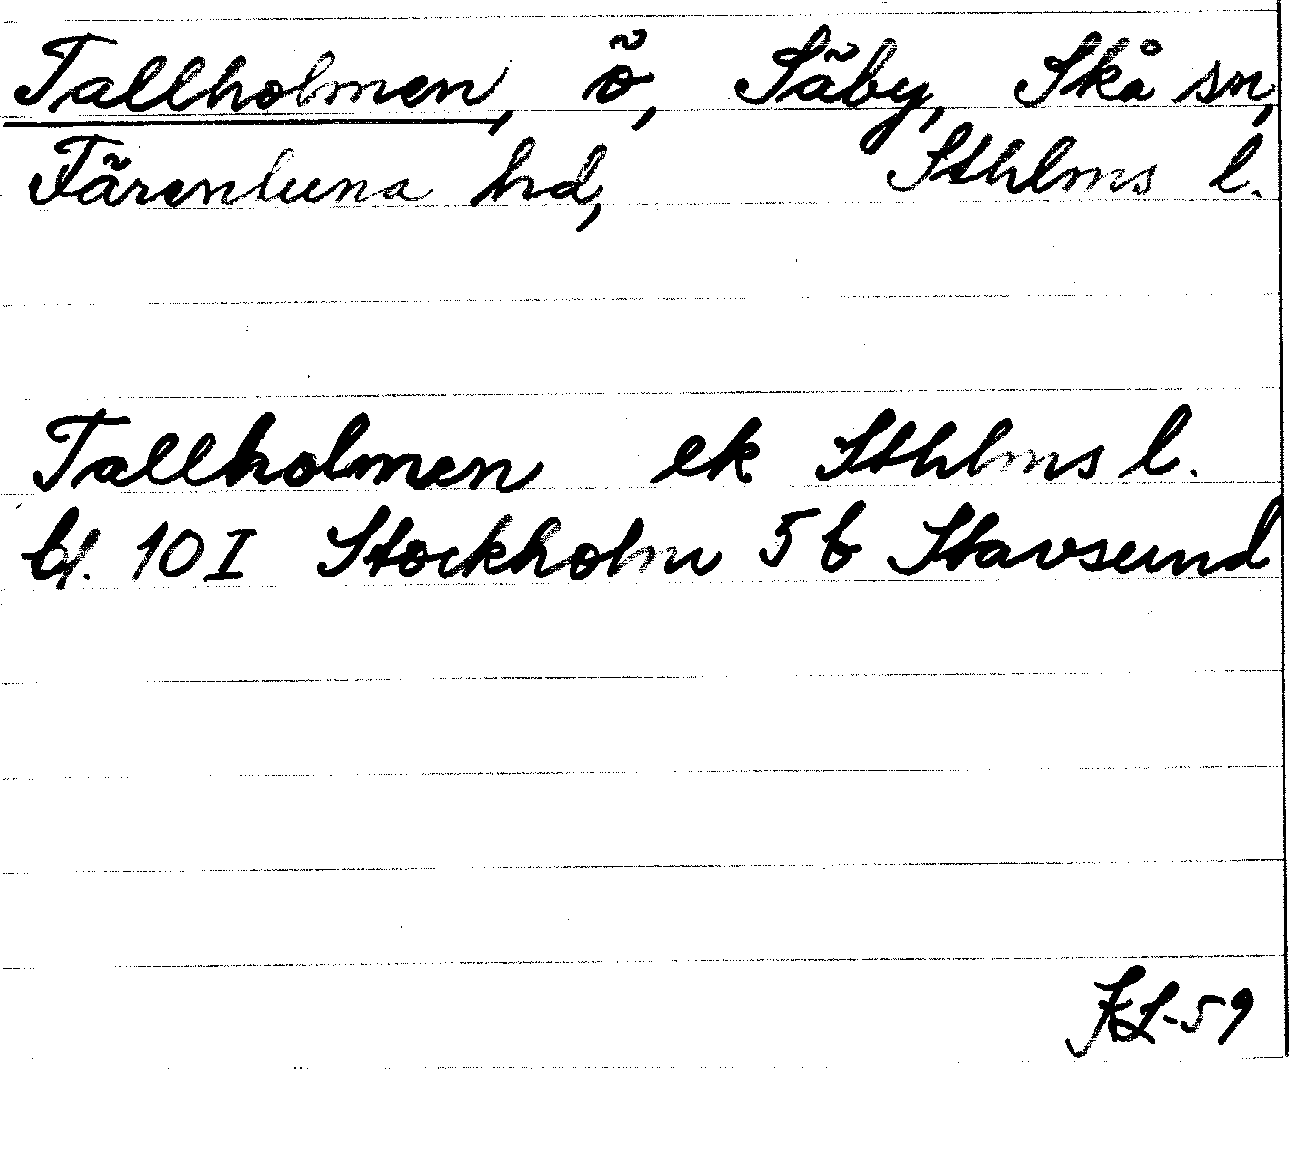 Tallholmen, ö, Säby, Skå sn,
Färentuna hd, Sthlms l.
Tallholmen ek Sthlms l.
bl. 10 I Stockholm 5 b Stavsund
KL-59